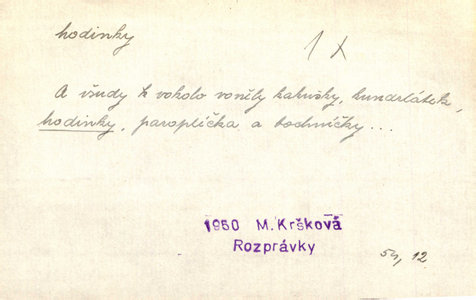 hodinky
1 X
A všudy vokolo voněly kalužky, kundrlátek,
hodinky, paroplíčka a bochníčky...
1960 M. Kršková
Rozprávky
54, 12